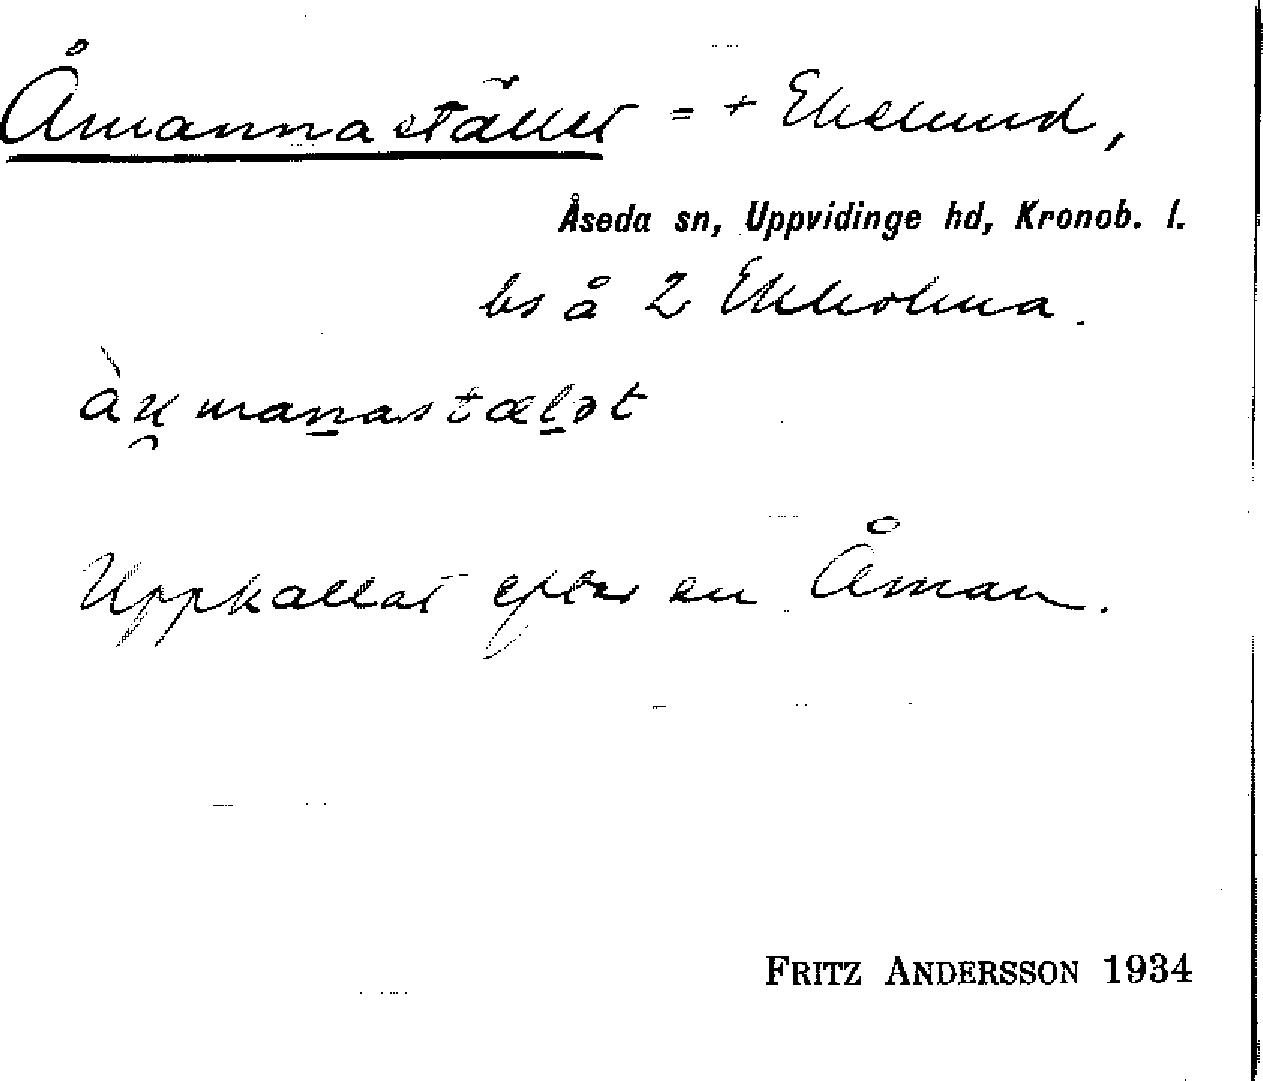 Åmannastället = + Ekelund,
Åseda sn, Uppvidinge hd, Kronob. l.
bs å 2 Ekholma.
Uppkallat efter en Åman.
FRITZ ANDERSSON 1934